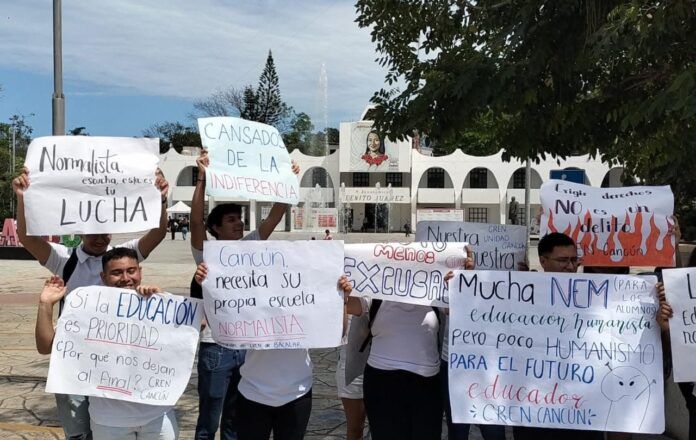 CANSADOS
DE LA
INDIFERENCIA
CREN CANCÚN
Normalista,
escucha, esta es
tu
LUCHA
BENITO JUÁREZ
Exigir derechos
NO es un
delito
NUESTRA
CREN UNIDAD
Nuestra
Cancún,
necesita su
propia escuela
NORMALISTA
MENOS
EXCUSAS
Mucha NEM
PARA LOS
ALUMNOS
educación humanista
Pero poco HUMANISMO
PARA EL FUTURO
educador
CREN CANCÚN
Si la EDUCACIÓN
es PRIORIDAD
¿Por qué nos dejan
al final? CREN
CANCÚN